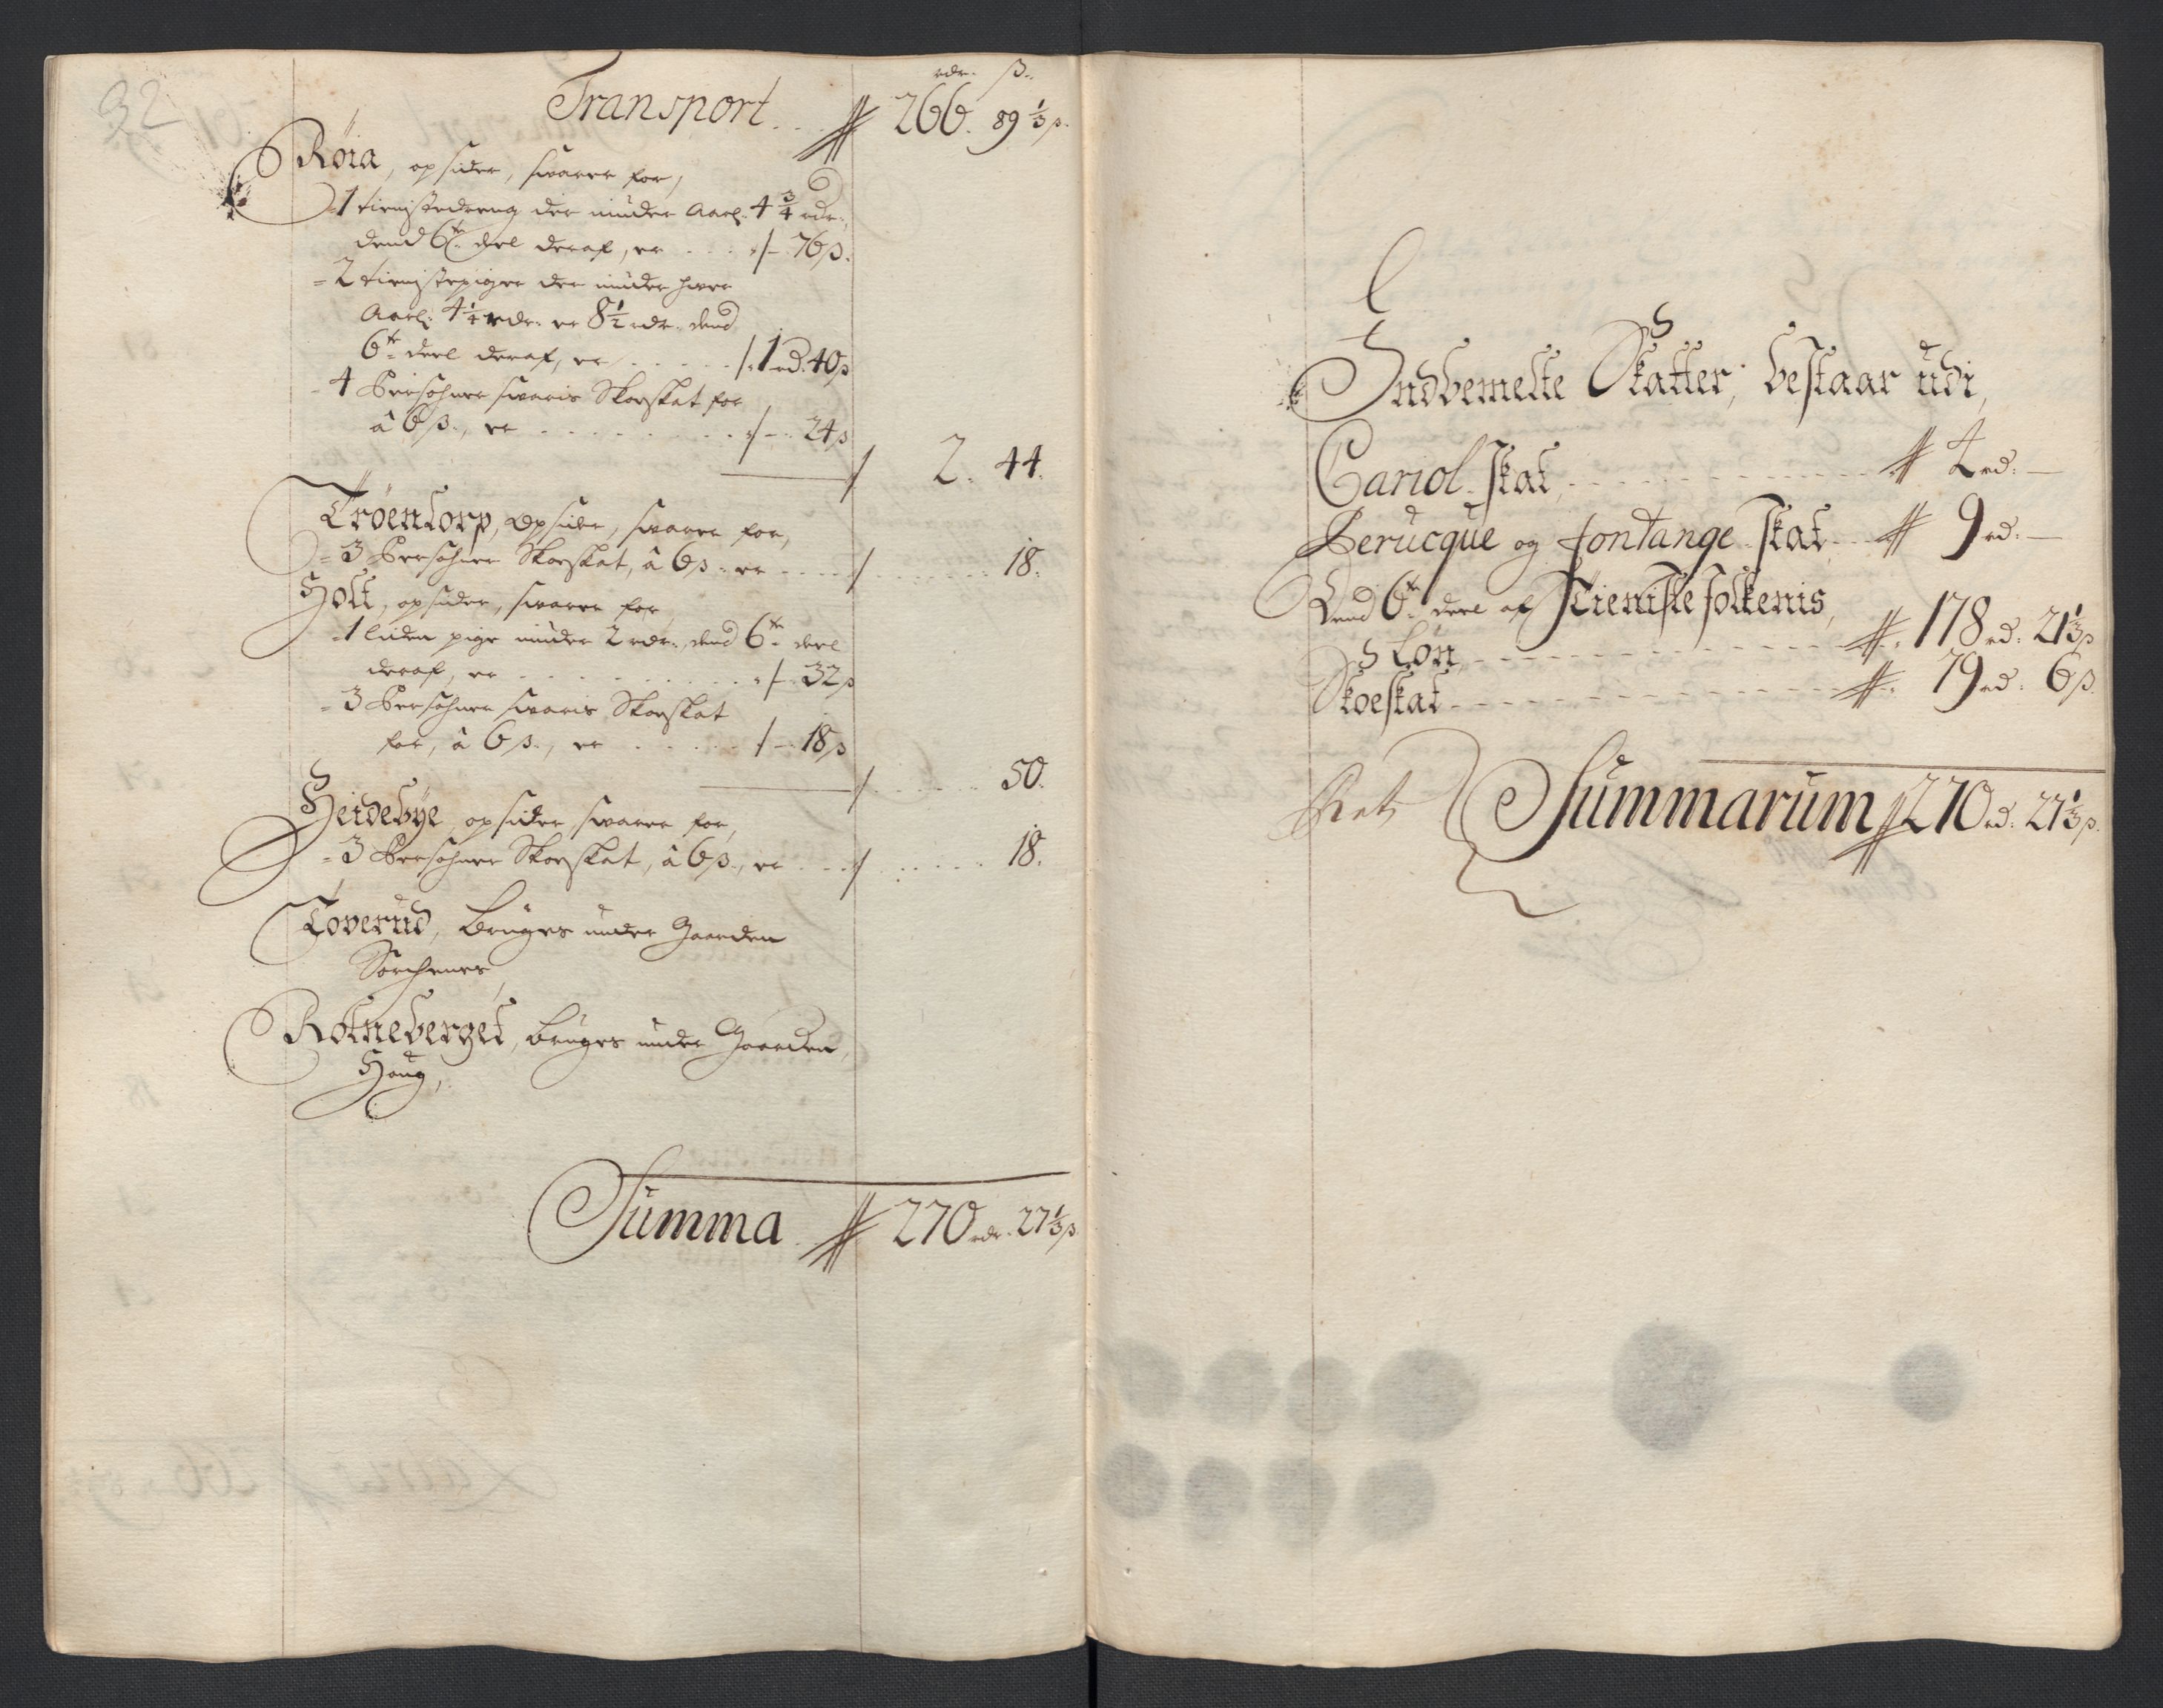 32
rdr. ß.
Transport .. 266. 89 1/3 ß.
Röia, opsider, swarer for,
- 1 tienistedreng der niuder Aarl. 4 3/4 rdr.
dend 6te deel deraf, er . . . - 76 ß.
- 2 tienistepiger der niuder hver
Aarl: 4 1/4 rdr. er 8 1/2 rdr. dend
6te deel deraf, er . . . . . 1 rd. 40 ß
- 4 Persohner swaris Skoeskat for
â 6 ß., er . . . . . . . . - 24 ß
2. 44.
Tröentorp, Opsider, swarer for,
- 3 Persohner Skoeskat, â 6 ß. er . . . . 18.
Holt, opsider, swarer for,
- 1 liden pige niuder 2 rdr., dend 6te deel
deraf, er . . . . . . . . . - 32 ß
- 3 Persohner swaris Skoeskat
for, â 6 ß., er . . . . . - 18 ß
50.
Heidebye, opsider, swarer for,
- 3 Persohner Skoeskat, â 6 ß., er . . . . 18.
Toverud, bruges under Gaarden
Sorchenes,
Rotneberget, bruges under Gaarden,
Houg,
Summa . 270 rdr. 27 1/3 ß.
Indbemelte Skatter, bestaar udi,
Cariol-skat, - - - - 4 rd. —
Perucque og fontange-skat - - 9 rd. —
Dend 6te deel af Tieniste folkenis,
Lön, - - - - 178 rd. 21 1/3 ß
Skoeskat - - - - 79 rd. 6 ß.
Summarum 270 rd. 27 1/3 ß.